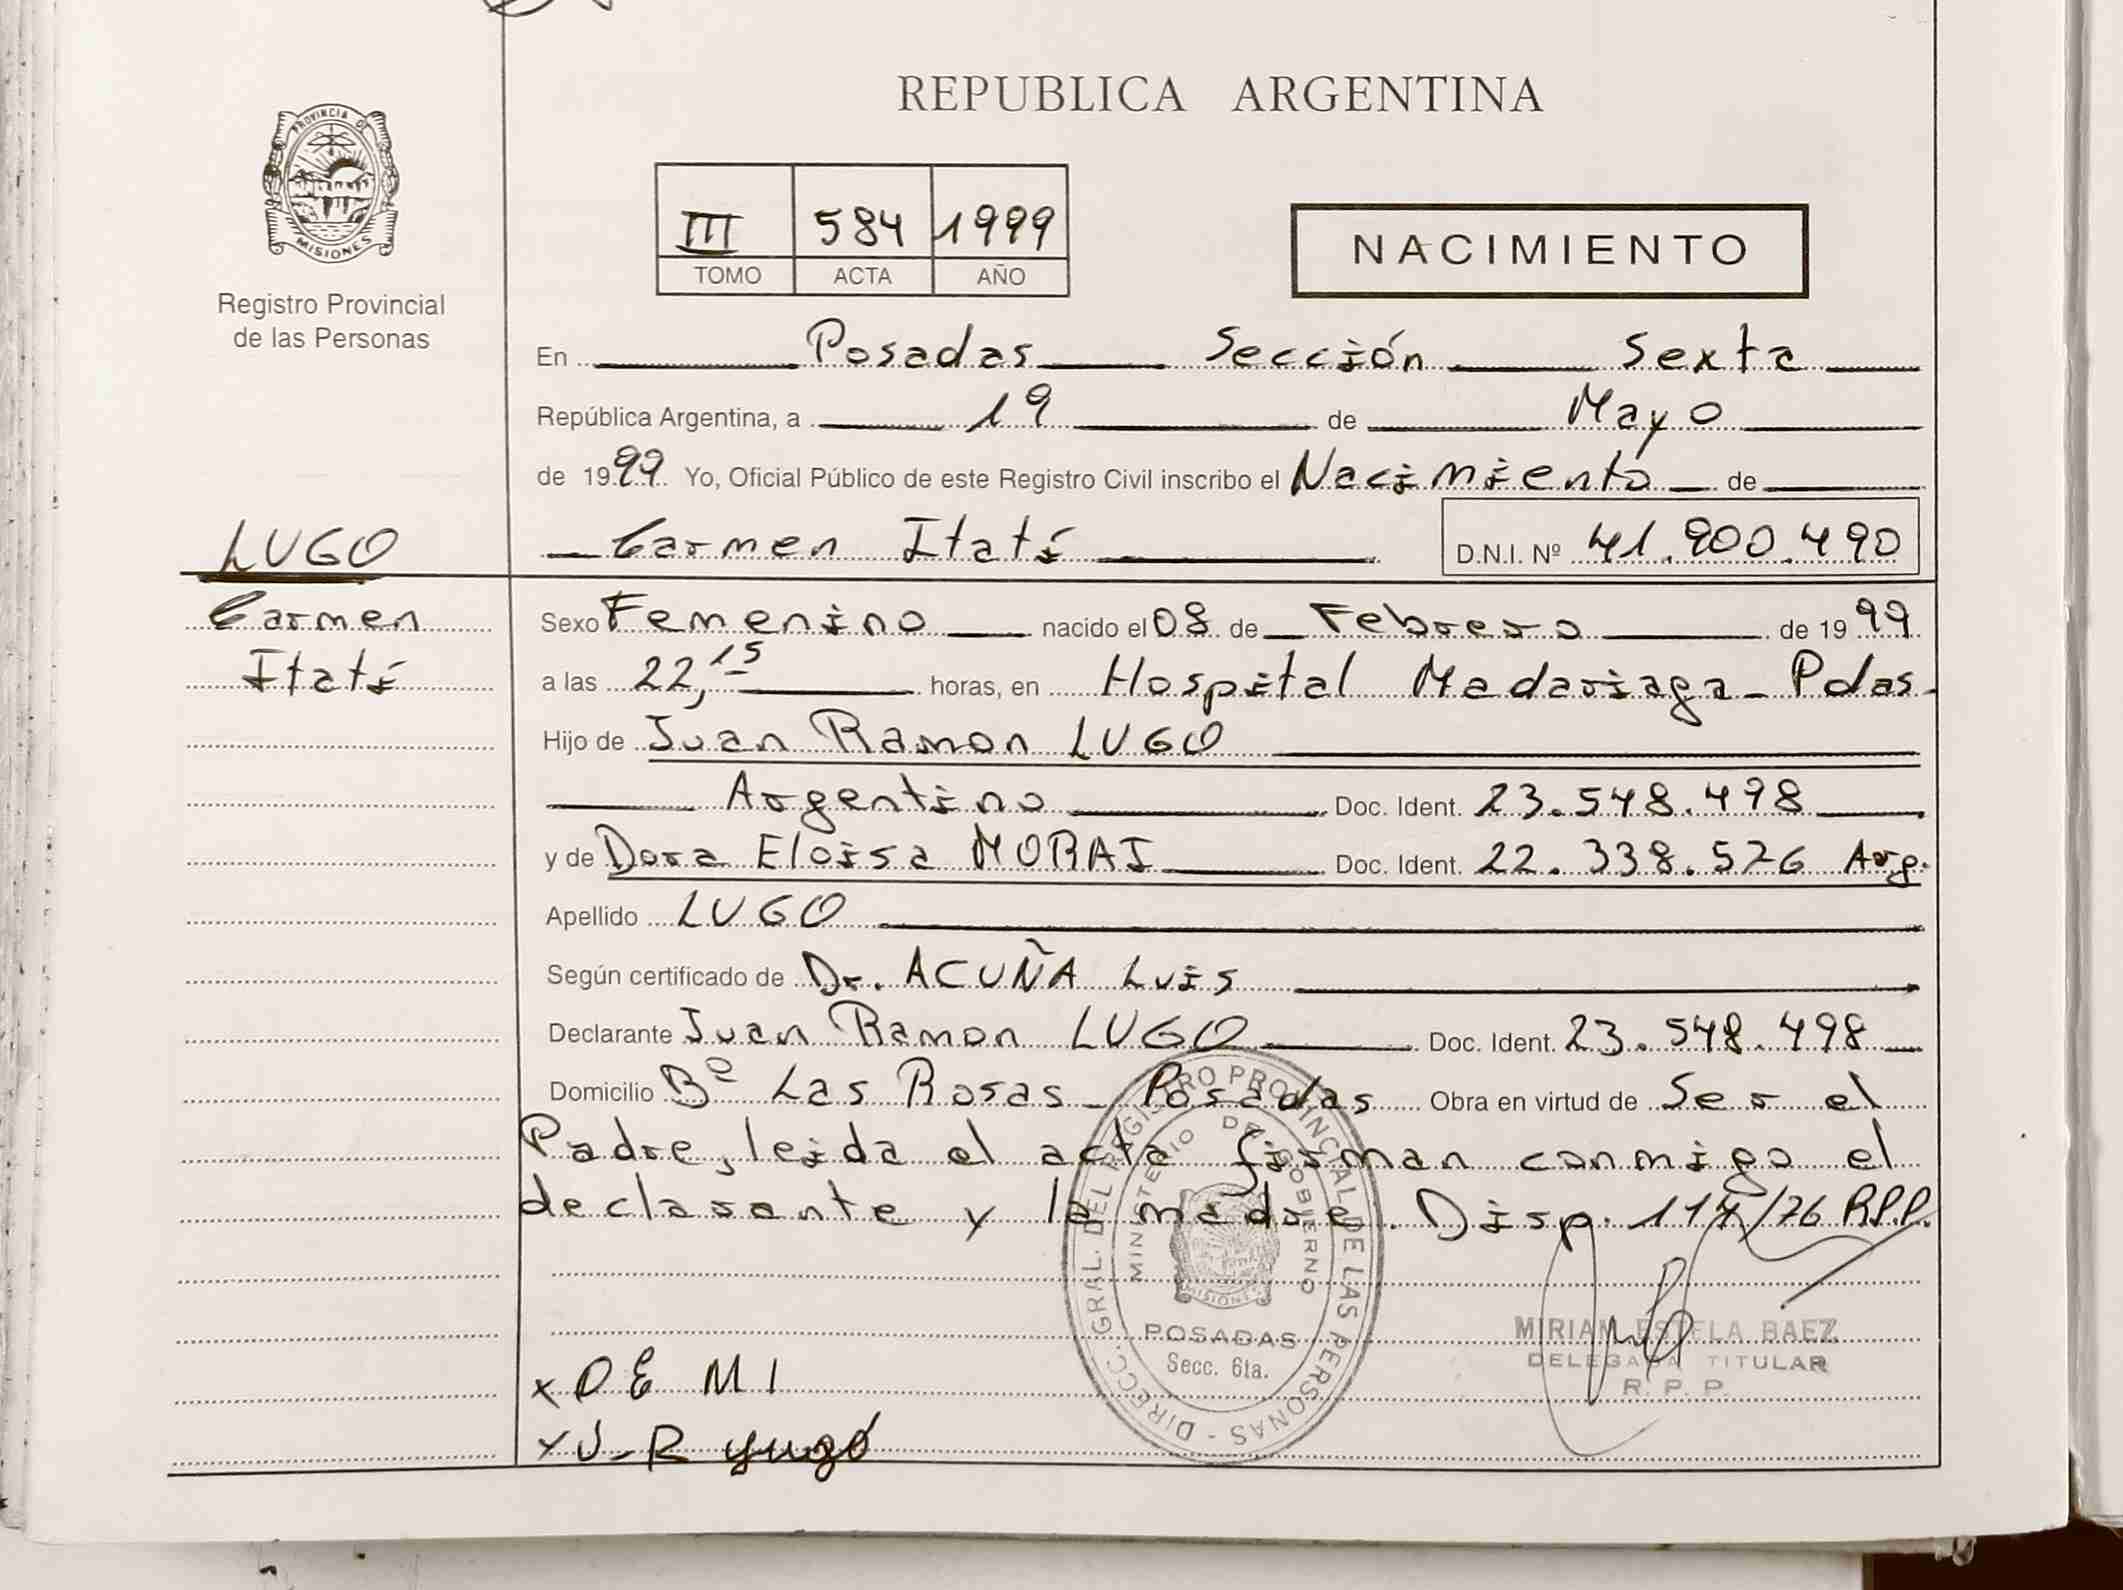 REPUBLICA ARGENTINA
PROVINCIA DE
MISIONES
Registro Provincial
de las Personas
III 584 1999
TOMO ACTA AÑO
NACIMIENTO
En Posadas Sección Sexta
República Argentina, a 19 de Mayo
de 1999 Yo, Oficial Público de este Registro Civil inscribo el Nacimiento de
LUGO Carmen Itatí D.N.I. Nº 41.900.490
Carmen Sexo Femenino nacido el 08 de Febrero de 1999
Itatí a las 22,15 horas, en Hospital Madariaga - Pdas.
Hijo de Juan Ramon LUGO
Argentino Doc. Ident. 23.548.498
y de Dora Eloisa Doc. Ident. 22.338.576 Arg.
Apellido LUGO
Según certificado de Dr. ACUÑA Luis
Declarante Juan Ramon LUGO Doc. Ident. 23.548.498
Domicilio Bº Las Rosas - Posadas Obra en virtud de Ser el
Padre, leida el acta firman conmigo el
declarante y la madre. Disp. /76 R.P.P.
DIRECC. GRAL. DEL REGISTRO PROVINCIAL DE LAS PERSONAS -
MINISTERIO DE GOBIERNO
MISIONES
POSADAS
Secc. 6ta.
MIRIAM ESTELA BAEZ
DELEGADA TITULAR
R. P. P.
x D E M I
x J-R Lugó